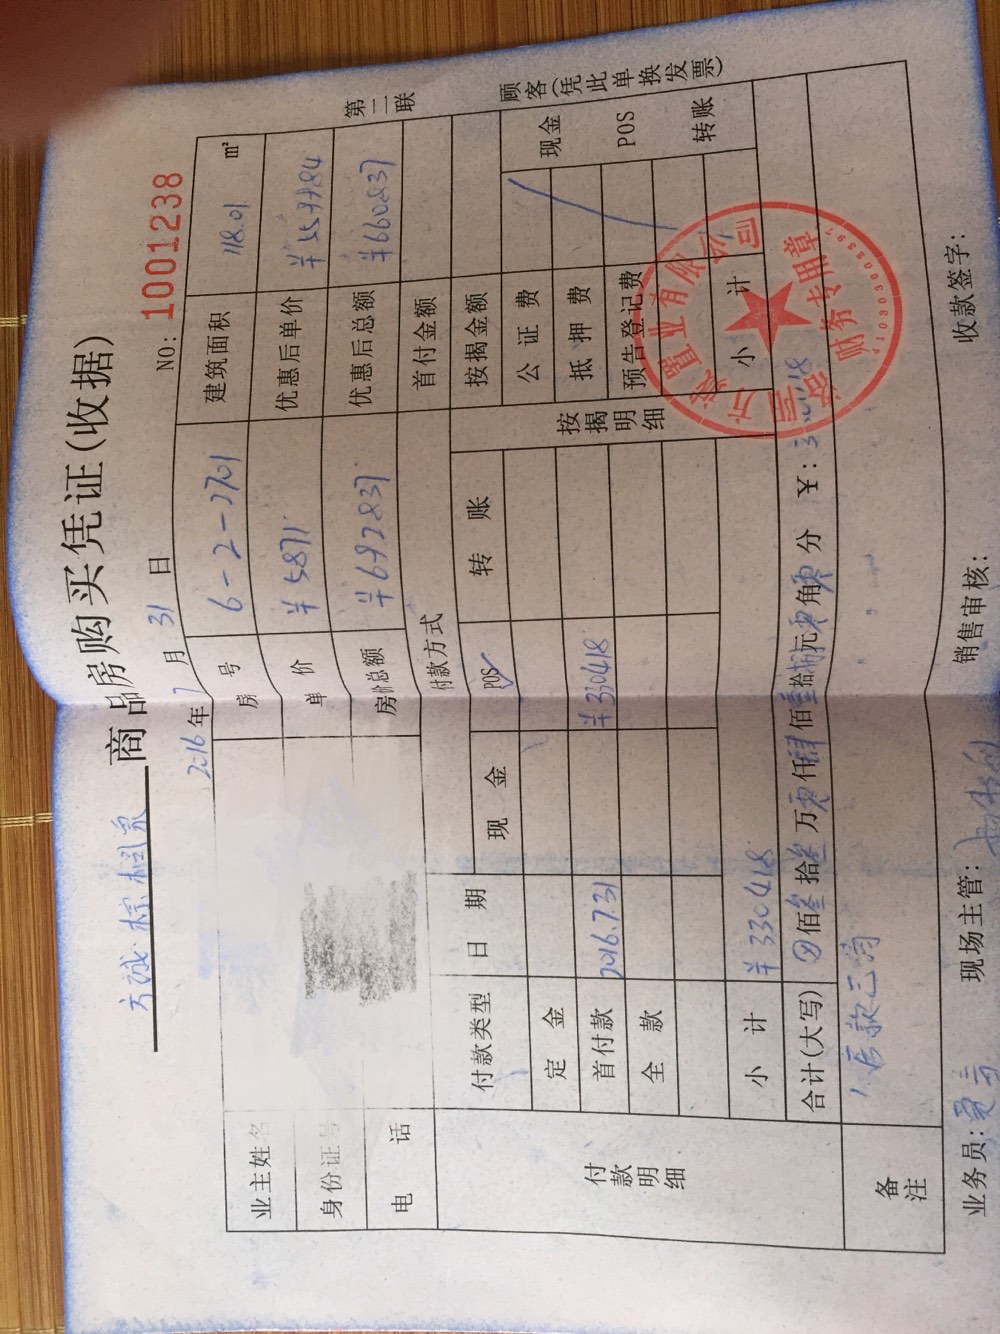 商品房购买凭证(收据)
2016年7月31日 NO: 10001238
第二联 顾客(凭此单换发票)
业主姓名 房号 6-2-2701 建筑面积 118.01 m²
身份证号 单价 ¥5871 优惠后单价
电话 房价总额 ¥692837 优惠后总额 ¥660837
付款方式 首付金额
付款明细 付款类型 日期 现金 POS✓ 转账 按揭明细 按揭金额
定金 公证费 现金
首付款 2016.7.31 ¥330418 抵押费 POS
全款 预告登记费 转账
小计 ¥330418 小计
合计(大写) 佰叁拾叁万零仟肆佰壹拾捌元零角零分 ¥:
备注
业务员: 现场主管: 销售审核: 收款签字:
财务专用章